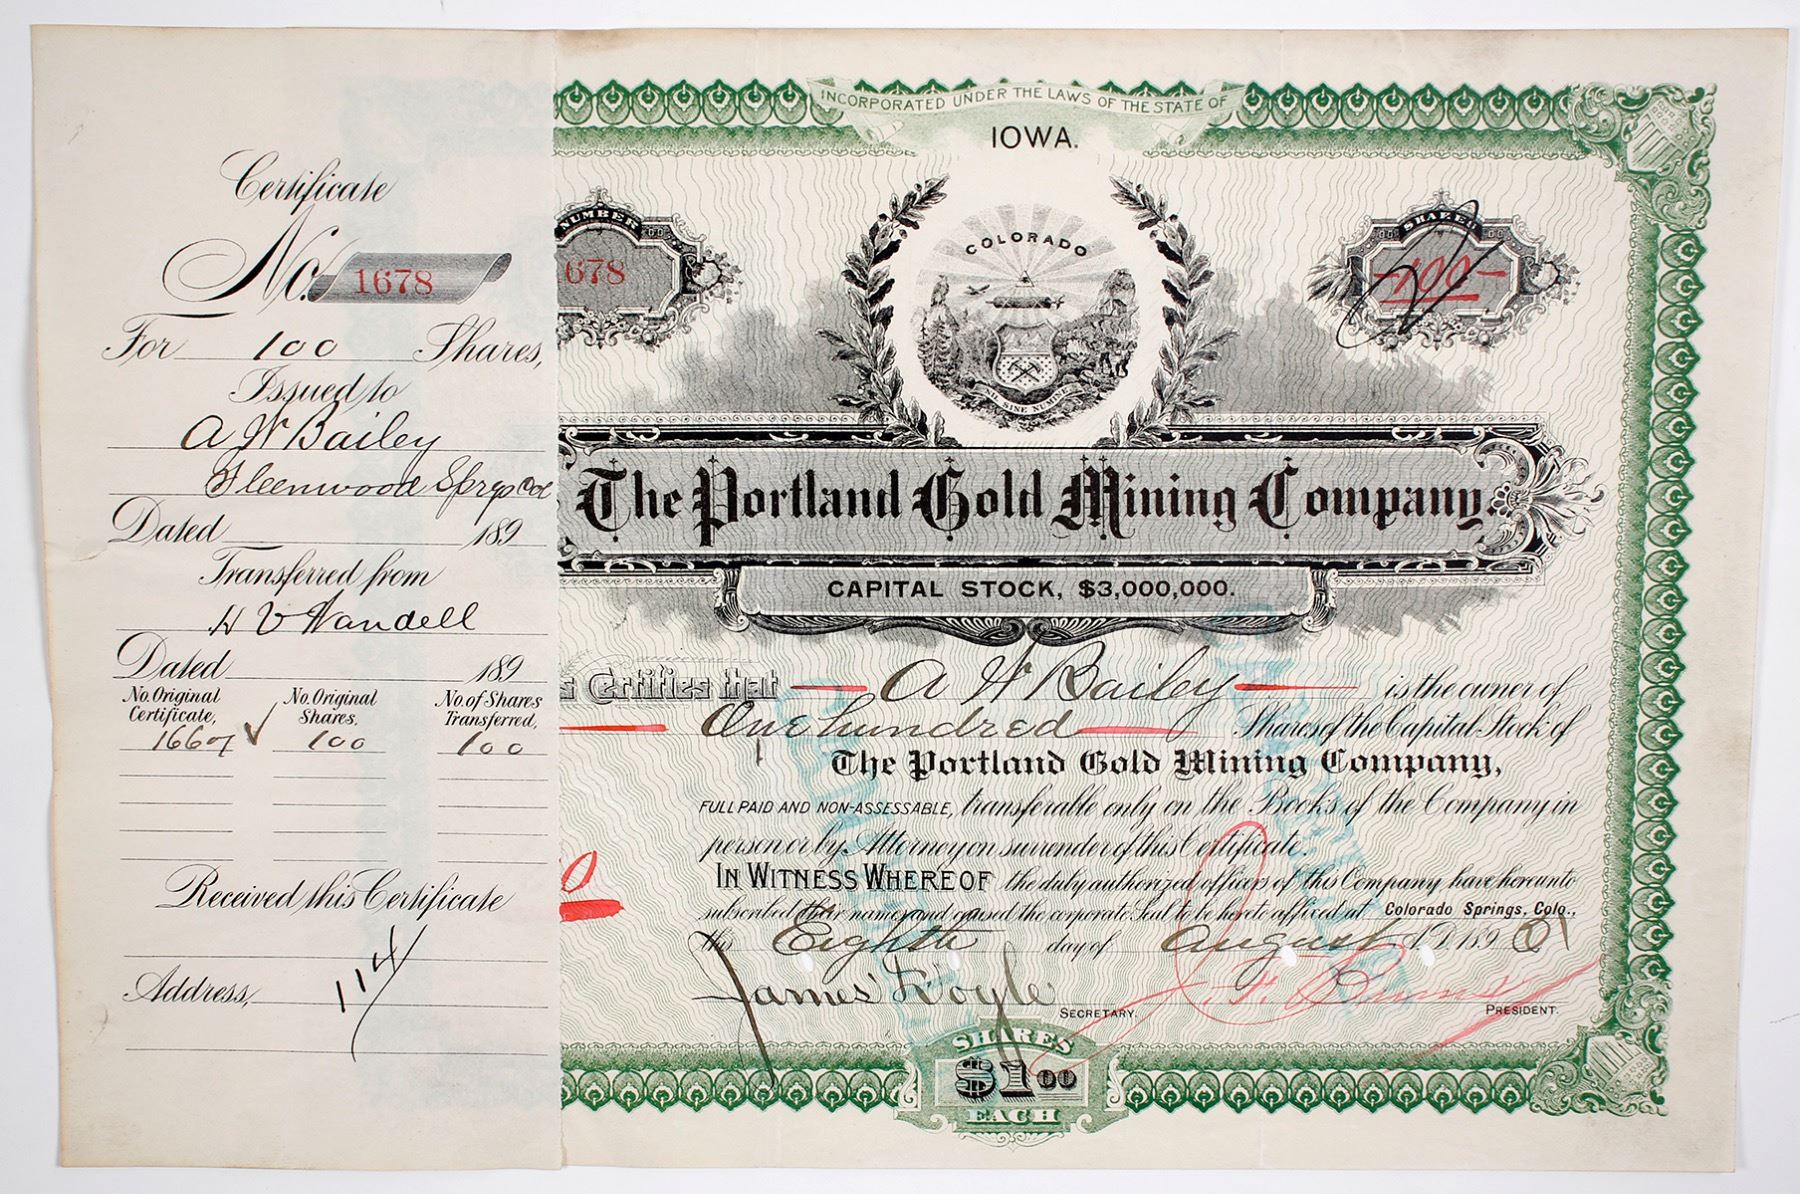 Certificate
No. 1678
For 100 Shares,
Issued to
A W Bailey
Glenwood Sprgs Col
Dated 189
Transferred from
H V Wandell
Dated 189
No. Original Certificate, No. Original Shares. No. of Shares Transferred,
1667 ✓ 100 100
Received this Certificate
114
Address,
INCORPORATED UNDER THE LAWS OF THE STATE OF
IOWA.
NUMBER
678
COLORADO
NIL SINE NUMINE
SHARES
-100-
The Portland Gold Mining Company.
CAPITAL STOCK, $3,000,000.
s Certifies that A W Bailey is the owner of
One hundred Shares of the Capital Stock of
The Portland Gold Mining Company,
FULL PAID AND NON-ASSESSABLE, transferable only on the Books of the Company in
person or by Attorney on surrender of this Certificate.
IN WITNESS WHEREOF the duly authorized officers of this Company have hereunto
subscribed their names and caused the corporate Seal to be hereto affixed at Colorado Springs, Colo.,
this Eighth day of August A.D. 189 01
James Doyle SECRETARY.
J. F. Burns PRESIDENT.
SHARES
$1.00
EACH